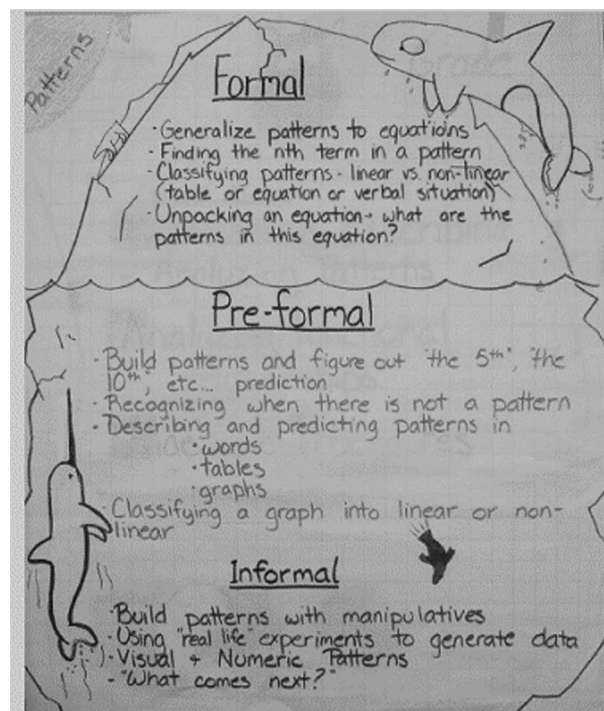 Patterns
Formal
· Generalize patterns to equations
· Finding the nth term in a pattern
· Classifying patterns - linear vs. non-linear
(table or equation or verbal situation)
· Unpacking an equation → what are the
patterns in this equation?
Pre-formal
· Build patterns and figure out "the 5th", "the
10th", etc... prediction
· Recognizing when there is not a pattern
· Describing and predicting patterns in
· words
· tables
· graphs
· Classifying a graph into linear or non-
linear
Informal
· Build patterns with manipulatives
· Using "real life" experiments to generate data
· Visual + Numeric Patterns
- "What comes next?"